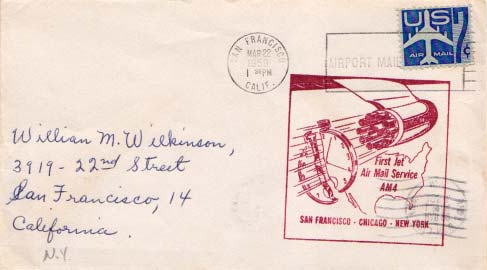 SAN FRANCISCO
MAR 22
1959
1 PM
CALIF.
AIRPORT MAIL
US
AIR MAIL
7¢
William M. Wilkinson,
3919 - 22nd Street
San Francisco, 14
California.
N.Y.
First Jet
Air Mail Service
AM4
SAN FRANCISCO - CHICAGO - NEW YORK